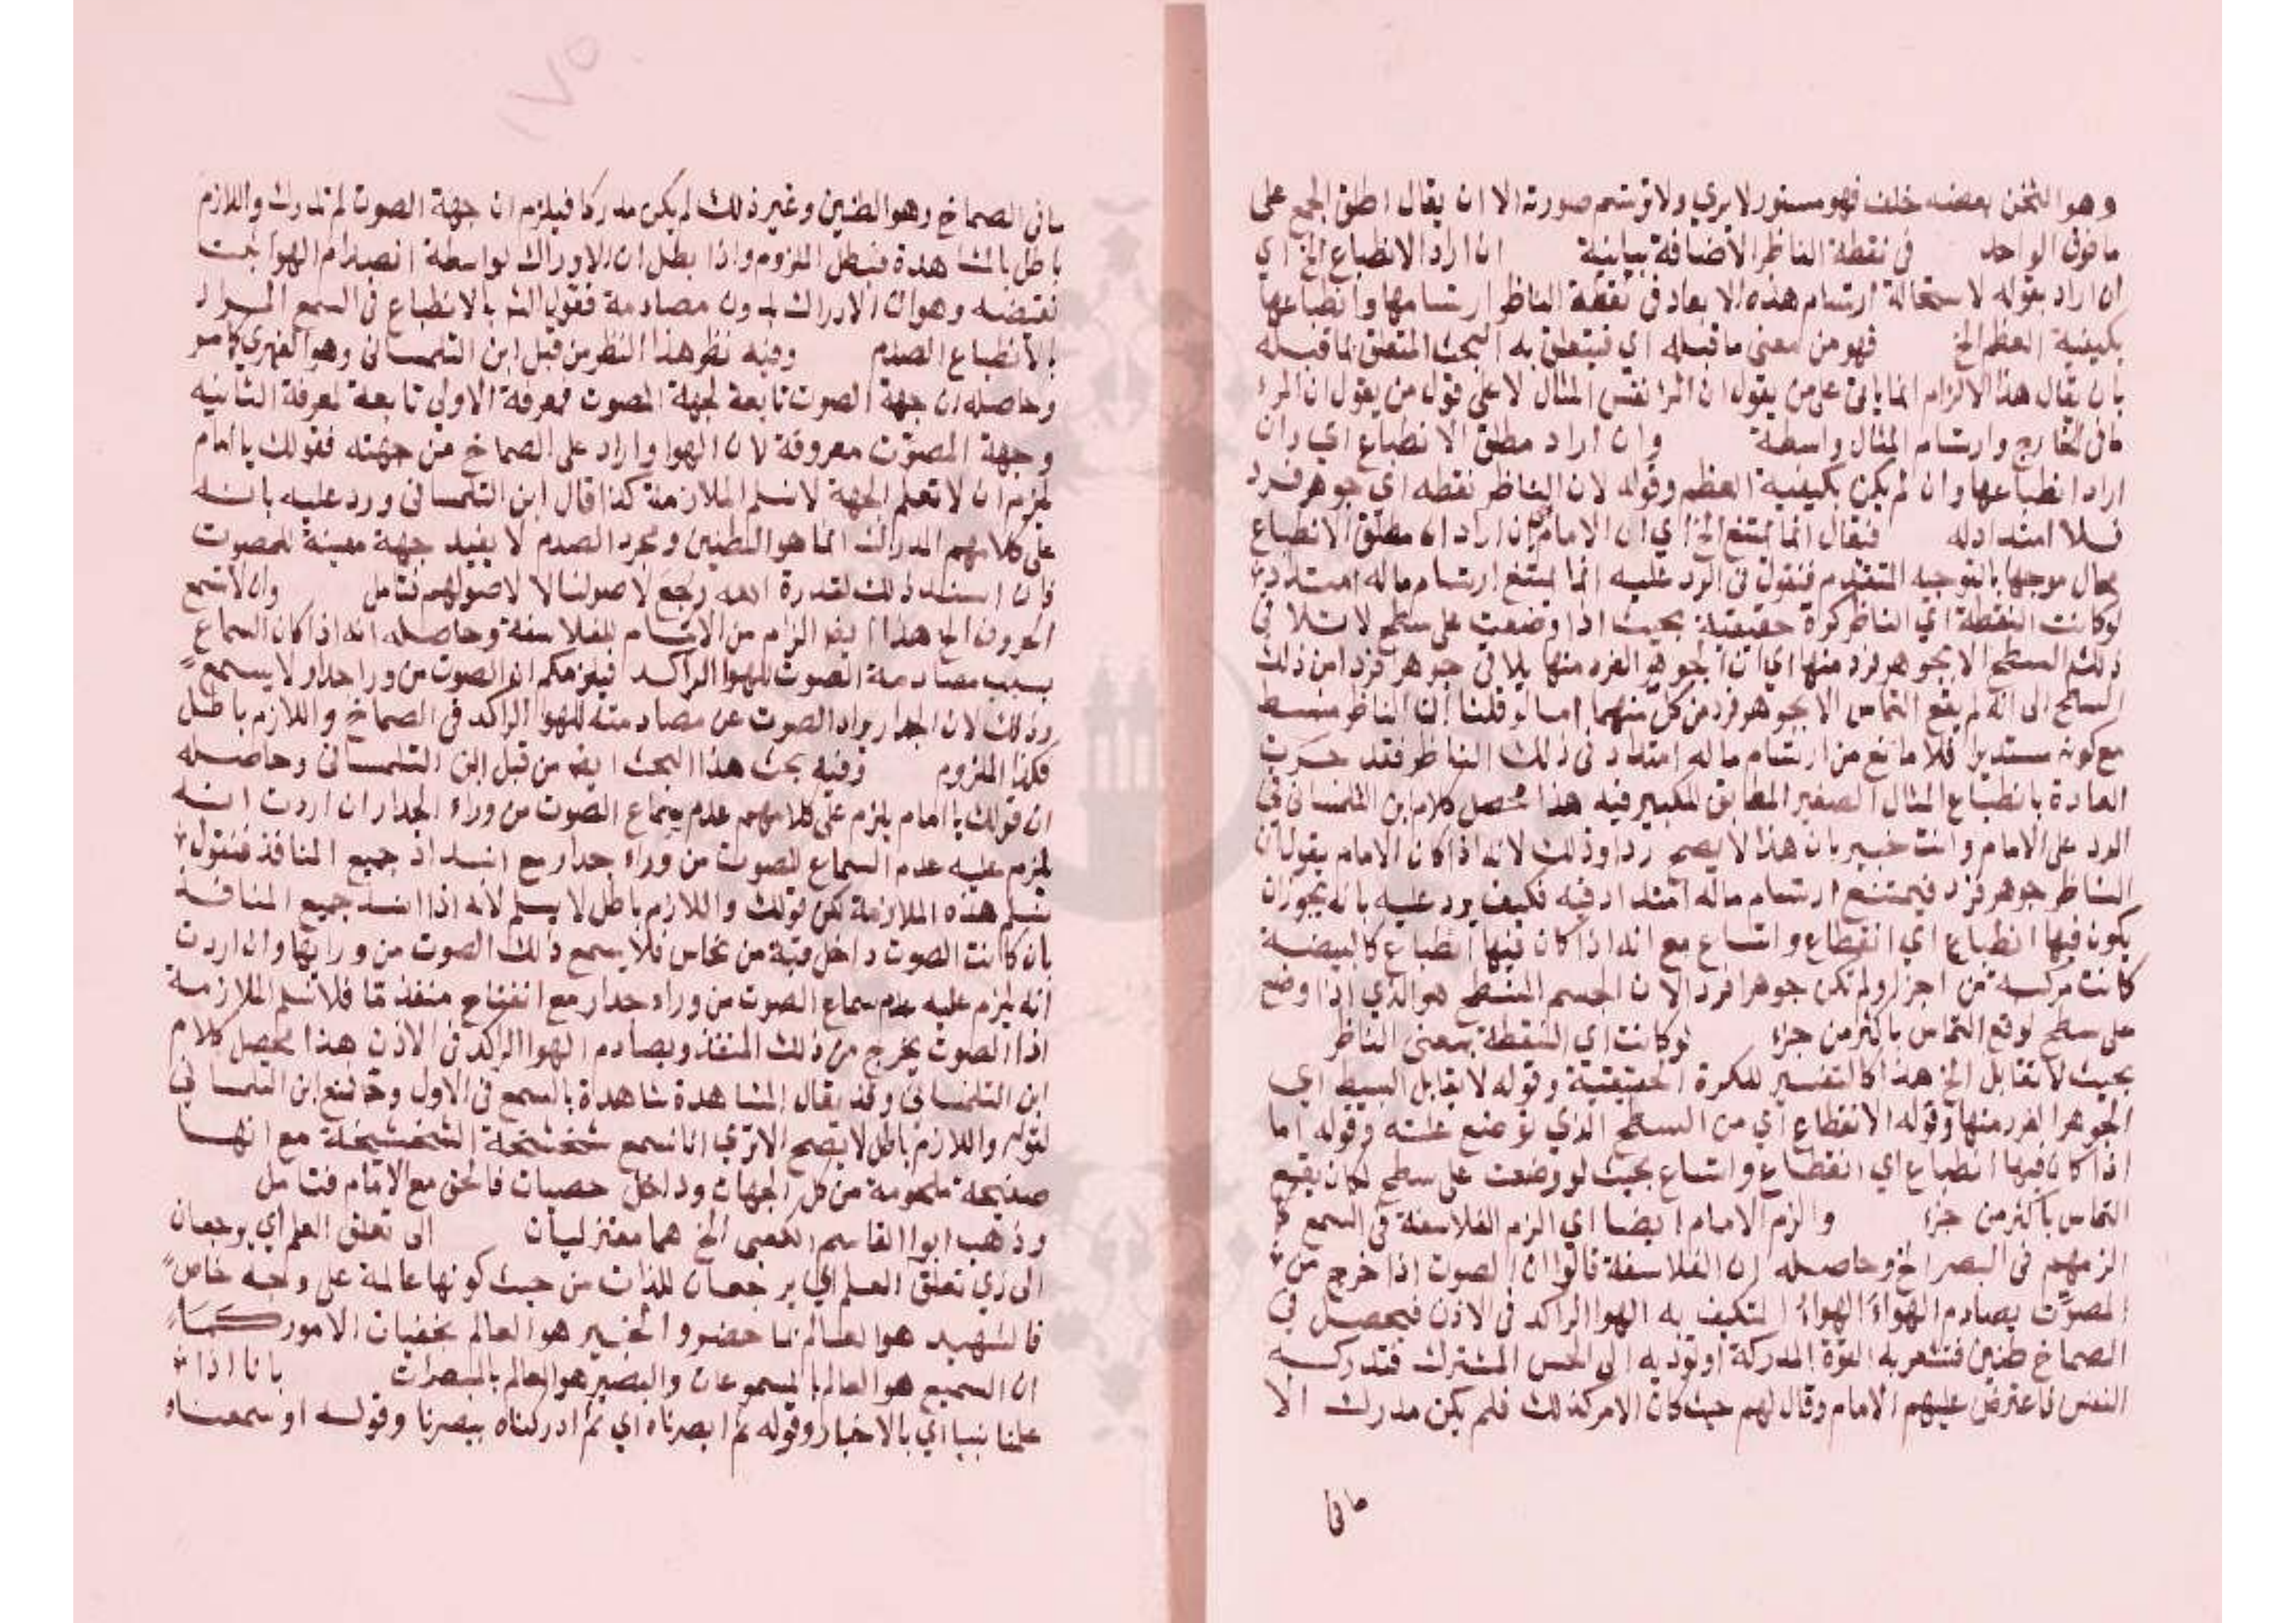 وهو الثخن بعضه خلف فهو مستور لا يري ولا ترتسم صورته الا ان يقال اطلق الجمع على
ما فوق الواحد في نقطة الناظر الاضافة بيانية ان اراد الانطباع الخ اي
ان اراد بقوله لاستحالة ارتسام هذه الابعاد في نقطة الناظر ارتسامها وانطباعها
بكيفية العظم الخ فهو من معني ما قبله اي فيتعلق به البحث المتعلق بما قبله
بان يقال هذا الالزام انما ياتي على من يقول ان المرا نفس المثال لا على قول من يقول ان المرا
ما في الخارج وارتسام المثال واسطة وان اراد مطلق الانطباع اي وان
اراد انطباعها وان لم يكن بكيفية العظم وقوله لان الناظر نقطه اي جوهر فرد
فلا امتداد له فيقال انما يمتنع الخ اي ان الامام ان اراد ان مطلق الانطباع
محال موجها بالتوجيه المتقدم فنقول في الرد عليه انما يمتنع ارتسام ما له امتداد
لو كانت النقطة اي الناظر كرة حقيقية بحيث اذا وضعت على سطح لا تلاقي
ذلك السطح الا بجوهر فرد منها اي ان الجوهر الفرد منها يلاقي جوهر فردا من ذلك
السطح الى انه لم يقع التماس الا بجوهر فرد من كل منهما اما لو قلنا ان الناظر منبسط
مع كونه مستديرا فلا مانع من ارتسام ما له امتداد في ذلك الناظر فقد جرت
العادة بانطباع المثال الصغير المطابق للكبير فيه هذا محصل كلام ابن التلمساني في
الرد على الامام وانت خبير بان هذا لا يصح ردا وذلك لانه اذا كان الامام يقول ان
الناظر جوهر فرد فيمتنع ارتسام ماله امتداد فيه فكيف يرد عليه بانه يجوز ان
يكون فيها انطباع اي انقطاع واتساع مع انه اذا كان فيها انطباع كالبيضة
كانت مركبة من اجزا ولم تكن جوهرا فردا لان الجسم المنبسط هو الذي اذا وضع
على سطح لوقع التماس باكثر من جزء لو كانت اي النقطة بمعنى الناظر
بحيث لا تقابل الخ هذا كالتفسير للكرة الحقيقية وقوله لا يقابل البسيط اي
الجوهر الفرد منها وقوله الانقطاع اي من السطح الذي توضع عليه وقوله اما
اذا كان فيها انطباع اي انقطاع واتساع بحيث لو وضعت على سطح لكان يقع
التماس باكثر من جزء والزم الامام ايضا اي الزم الفلاسفة في السمع كما
الزمهم في البصر الخ وحاصله ان الفلاسفة قالوا ان الصوت اذا خرج من
المصوت يصادم الهواء الهواء المتكيف به الهوا الراكد في الاذن فيحصل في
الصماخ طنين فتشعر به القوة المدركة او تؤديه الى الحس المشترك فتدركه
النفس فاعترض عليهم الامام وقال لهم حيث كان الامر كذلك فلم يكن مدرك الا
ما في
١٧٥
ما في الصماخ وهو الطنين وغير ذلك لم يكن مدركا فيلزم ان جهة الصوت لم تدرك واللازم
باطل بالمشاهدة فبطل الملزوم واذا بطل ان الادراك بواسطة انصدام الهوا ثبت
نقيضه وهو ان الادراك بدون مصادمة فقول الش بالانطباع في السمع المراد
بالانطباع الصدم وفيه نظر هذا النظر من قبل ابن التلمساني وهو الفهري كما مر
وحاصله ان جهة الصوت تابعة لجهة المصوت فمعرفة الاولى تابعة لمعرفة الثانيه
وجهة المصوت معروفة لان الهوا وارد على الصماخ من جهته فقولك يا امام
يلزم ان لا تعلم الجهة لا نسلم الملازمة كذا قال ابن التلمساني ورد عليه بانه
على كلامهم المدرك انما هو الطنين ومجرد الصدم لا يفيد جهة معينة للمصوت
فان استند ذلك لقدرة الله رجع لاصولنا لا لاصولهم فتامل وان لا تسمع
الحروف الخ هذا ايضا الزام من الامام للفلاسفة وحاصله انه اذا كان السماع
بسبب مصادمة الصوت للهوا الراكد فيلزمكم ان الصوت من ورا جدار لا يسمع
وذلك لان الجدار يرد الصوت عن مصادمته للهوا الراكد في الصماخ واللازم باطل
فكذا الملزوم وفيه بحث هذا البحث ايضا من قبل ابن التلمساني وحاصله
ان قولك يا امام يلزم على كلامهم عدم سماع الصوت من وراء الجدار ان اردت انه
يلزم عليه عدم السماع للصوت من وراء جدار مع انسداد جميع المنافذ فنقول
نسلم هذه الملازمة لكن قولك واللازم باطل لا يسلم لانه اذا انسد جميع المنافذ
بان كانت الصوت داخل قبة من نحاس فلا يسمع ذلك الصوت من ورائها وان اردت
انه يلزم عليه عدم سماع الصوت من وراء جدار مع انفتاح منفذ ما فلا نسلم الملازمة
اذ الصوت يخرج من ذلك المنفذ ويصادم الهوا الراكد في الاذن هذا محصل كلام
ابن التلمساني وقد يقال المشاهدة شاهدة بالسمع في الاول وح فمنع ابن التلمساني
لقوله واللازم باطل لا يصح الا تري انا نسمع شخشخة الشخشيخة مع انها
صفيحة ملحومة من كل الجهات وداخل حصيات فالحق مع الامام فتامل
وذهب ابوا القاسم الكعبي الخ هما معتزليان الى تعلق العلم اي يرجعان
الى ذي تعلق العلم اي يرجعان للذات من حيث كونها عالمة على وجه خاص
فالشهيد هو العالم بما حضر والخبير هو العالم بخفيات الامور كما
ان السميع هو العالم بالمسموعات والبصير هو العالم بالمبصرات بانا اذا
علمنا شيا اي بالاخبار وقوله ثم ابصرناه اي ثم ادركناه ببصرنا وقوله او سمعناه